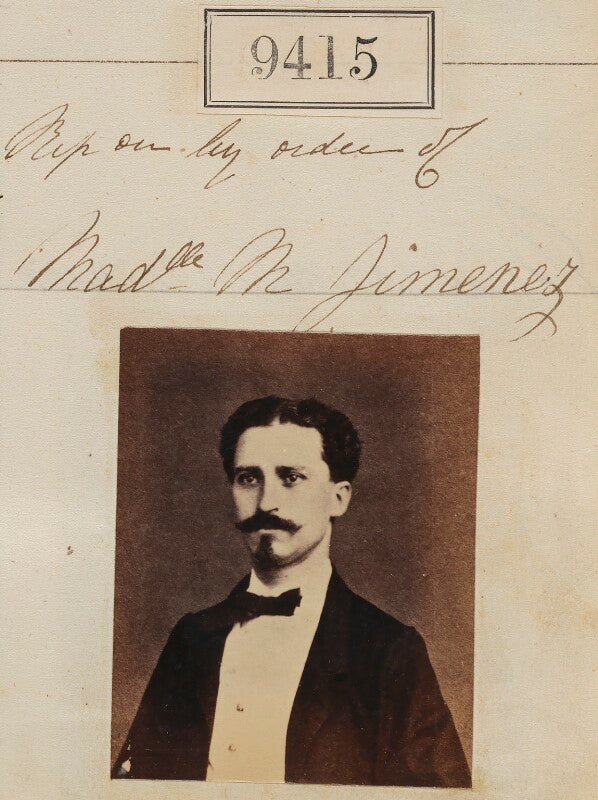 9415
Rep on by order of
Madlle M Jimenez